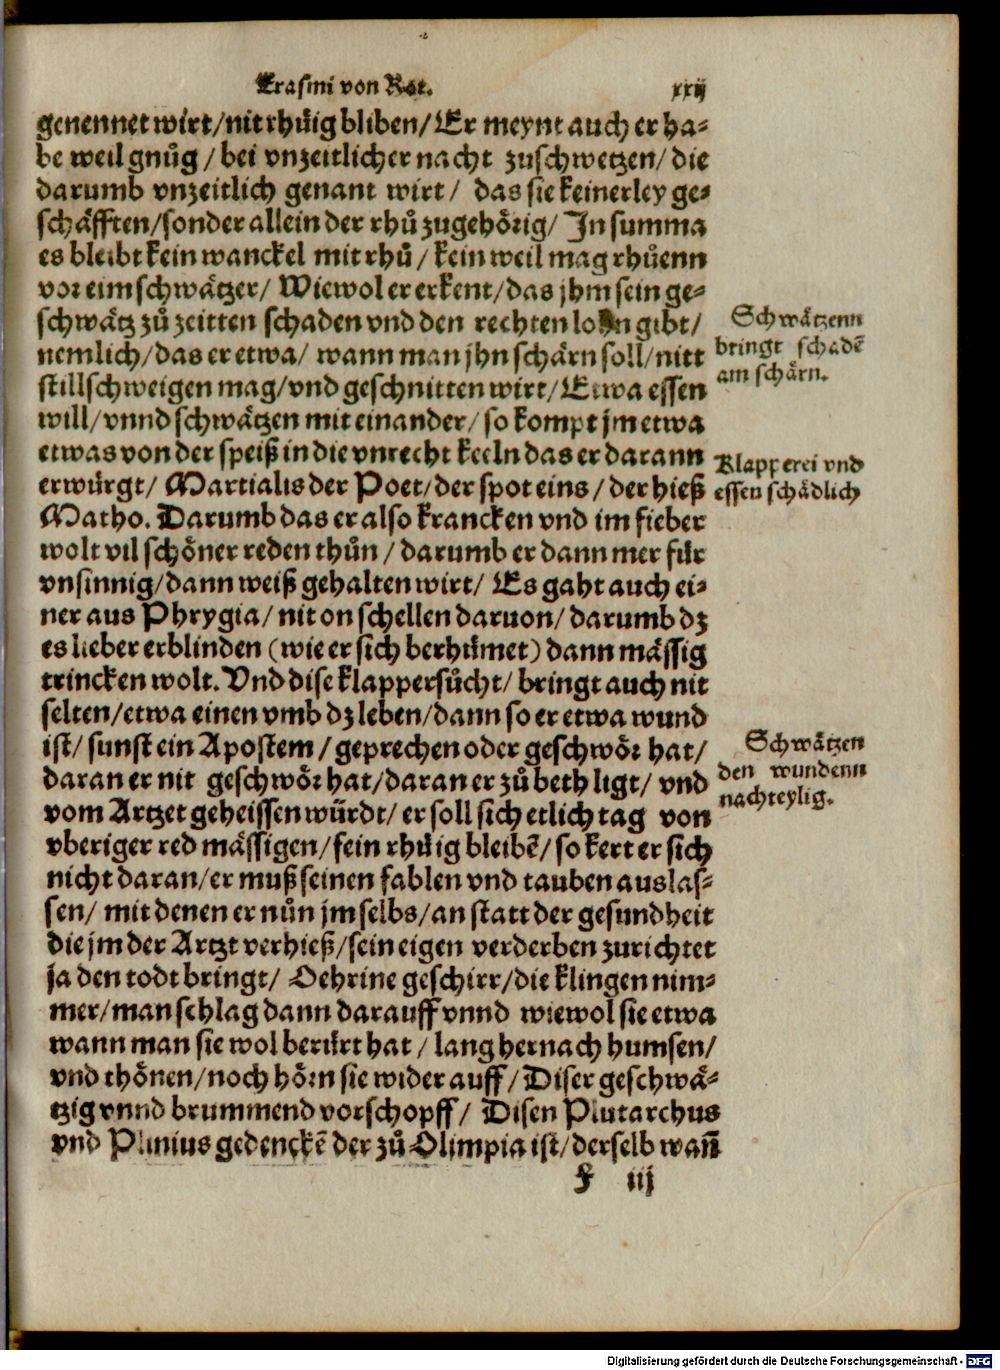 Erasmi von Rot.
xxij
genennet wirt/nit rhüig bliben/Er meynt auch er ha-
be weil gnůg / bei vnzeitlicher nacht zuschwetzen/ die
darumb vnzeitlich genant wirt/ das sie keinerley ge-
schäfften/sonder allein der rhů zugehörig/ In summa
es bleibt kein wanckel mit rhů / kein weil mag rhůenn
vor eim schwätzer/ Wiewol er erkent/das jhm sein ge-
schwätz zů zeitten schaden vnd den rechten lohn gibt/
nemlich/das er etwa/ wann man jhn schärn soll/nitt
stillschweigen mag/vnd geschnitten wirt/ Etwa essen
will/vnnd schwätzen mit einander/ so kompt jm etwa
etwas von der speiß in die vnrecht keeln das er darann
erwürgt/ Martialis der Poet/der spot eins / der hieß
Matho. Darumb das er also krancken vnd im fieber
wolt vil schöner reden thůn / darumb er dann mer für
vnsinnig/dann weiß gehalten wirt/ Es gaht auch ei-
ner aus Phrygia/ nit on schellen daruon/ darumb dz
es lieber erblinden (wie er sich berhümet) dann mässig
trincken wolt. Vnd dise klappersůcht/ bringt auch nit
selten/etwa einen vmb dz leben/dann so er etwa wund
ist/ sunst ein Apostem / geprechen oder geschwör hat/
daran er nit geschwör hat/daran er zů beth ligt/ vnd
vom Artzet geheissen würdt/ er soll sich etlich tag von
vberiger red mässigen/fein rhüig bleibē/so kert er sich
nicht daran/er muß seinen fablen vnd tauben auslas-
sen/ mit denen er nůn jm selbs/an statt der gesundheit
die jm der Artzt verhieß/sein eigen verderben zurichtet
ja den todt bringt/ Oehrine geschirr/die klingen nim-
mer/man schlag dann darauff vnnd wiewol sie etwa
wann man sie wol berürt hat / lang hernach humsen/
vnd thönen/noch hörn sie wider auff / Diser geschwä-
tzig vnnd brummend vorschopff/ Disen Plutarchus
vnd Plinius gedenckē der zů Olimpia ist/derselb wañ
f iij
Schwätzenn
bringt schadē
am schärn.
Klapperei vnd
essen schädlich
Schwätzen
den wundenn
nachteylig.
Digitalisierung gefördert durch die Deutsche Forschungsgemeinschaft - DFG